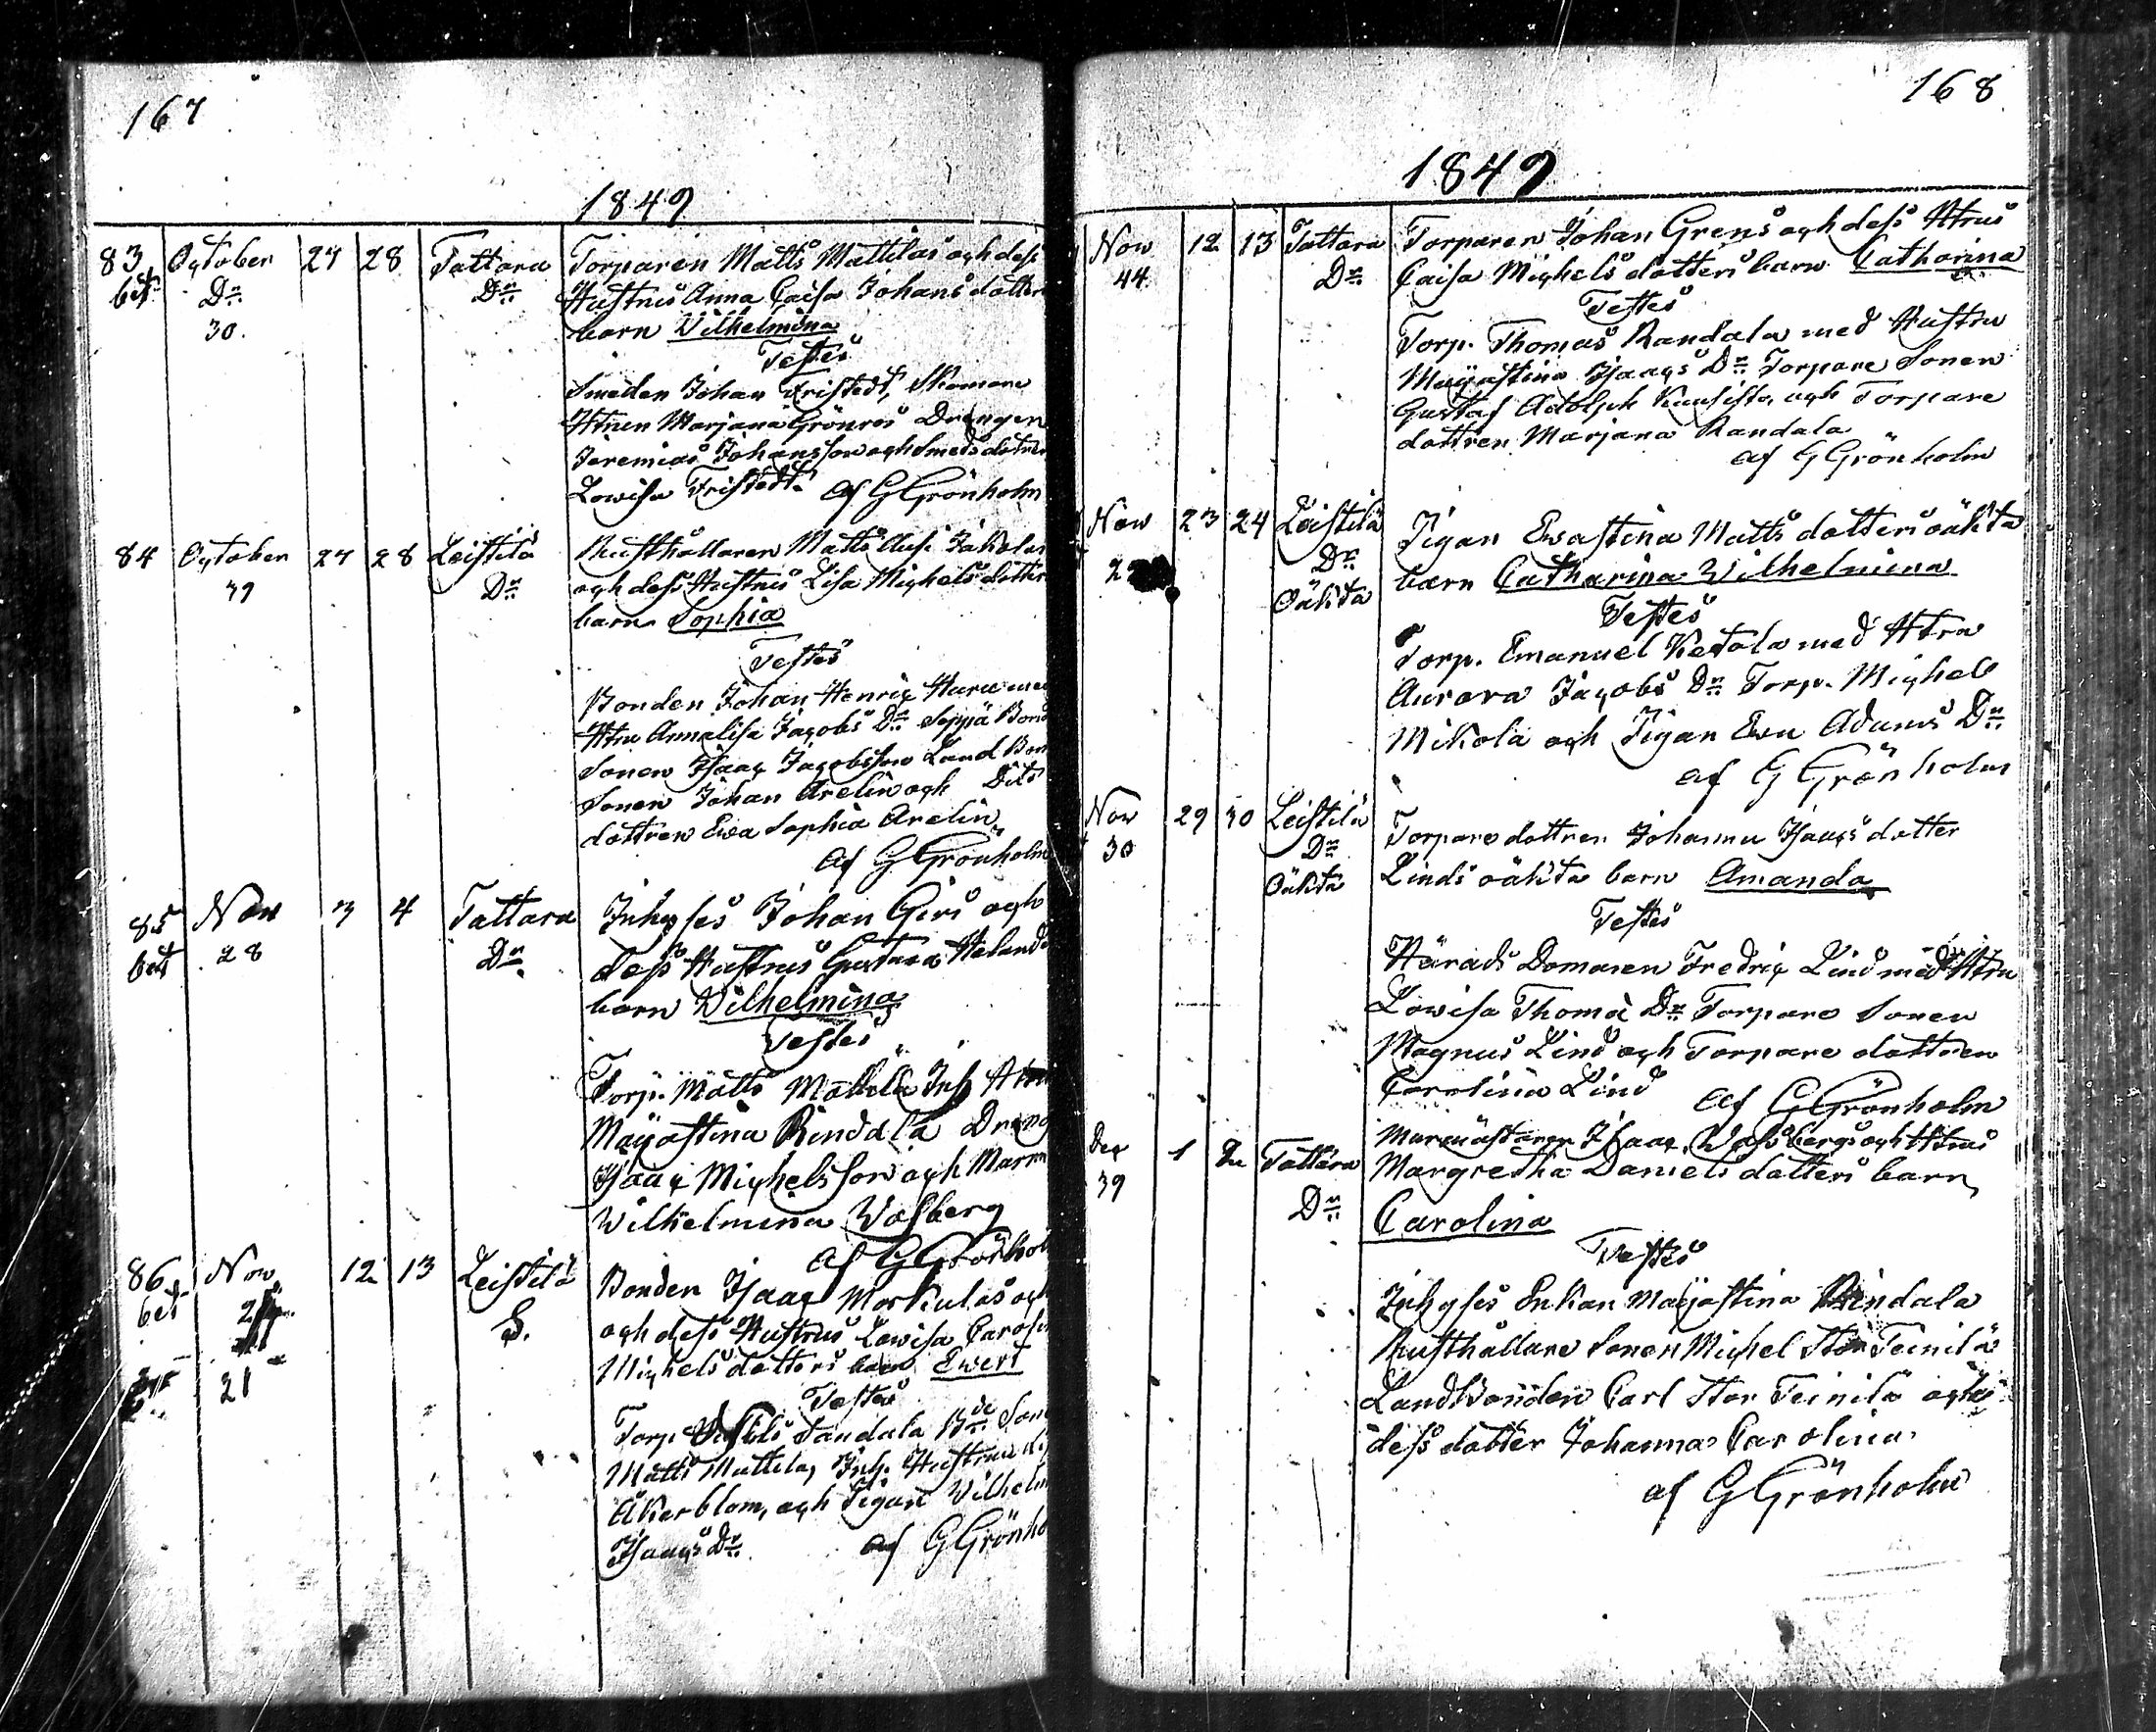 167
1849
83 October 27 28 Tattara Torparen Matts Mattilas och dess
bet. Dn Dn Hustrus Anna Caisa Johansdotters
30. barn Wilhelmina
Testes
Smeden Johan Fristedt, Skomare
Htrun Marjana Grönros Drängen
Jeremias Johansson och Smedsdotren
Lowisa Fristedt. af G Grönholm
84 October 27 28 Leistilä Rusthållaren Matts Jakolas
39 Dn och dess Hustrus Lisa Michelsdotters
barn Sophia
Testes
Bonden Johan Henric Huru med
Htru Annalisa Jacobs Dn Seppä Bond
Sonen Isaac Jacobsson Land Bon
Sonen Johan Arelin och Dito
dottren Ewa Sophia Arelin
af G Grönholm
85 Nov 3 4 Tattara Inhyses Johan Girs och
bet 28 Dn dess Hustrus Gustava Helands
barn Wilhelmina
Testes
Torp. Matts Mattila Inh Htru
Majastina Rindala Dreng
Isaac Michelsson och Mamm
Wilhelmina Wasberg
af G Grönhol
86 Nov 12 13 Leistilä Bonden Isaac Morkulas och
bet S. och dess Hustrus Lowisa Carolin
21 Michelsdotters barn Ewert
Testes
Torp. Sandala Bde Son
Matts Mattila, Inh. Hustrun
Åkerblom, och Pigan Wilhelm
Isaacs Dn. af G Grönho
168
1849
Nov 12 13 Tattara Torparen Johan Grens och dess Htrus
44 Dn Caisa Michelsdotters barn Catharina
Testes
Torp. Thomas Randala med Hustru
Majastina Isaacs Dn Torpare Sonen
Gustaf Adolph Kuusisto och Torpare
dottren Marjana Randala
af G Grönholm
Nov 23 24 Leistilä Pigan Ewastina Mattsdotters oäkta
Dn barn Catharina Wilhelmina
Oäkta Testes
Torp. Emanuel Ketola med Htru
Aurora Jacobs Dn Torp. Michel
Mikola och Pigan Ewa Adams Dn
af G Grönholm
Nov 29 30 Leistilä Torpare dottren Johanna Isaacsdotter
30 Dn Linds oäkta barn Amanda
Oäkta Testes
Härads Domaren Fredric Lind med Htru
Lowisa Thoma Dn Torpare Sonen
Magnus Lind och Torpare dottren
Carolina Lind af G Grönholm
Dec 1 2 Tattara Murmästaren Isaac Wasbergs och Htrus
39 Dn Margretha Danielsdotters barn
Carolina
Testes
Inhyses Enkan Majastina Rindala
Rusthållare Sonen Michel Stor Teinilä
Landbonden Carl Stor Teinilä och
dess dotter Johanna Carolina
af G Grönholm